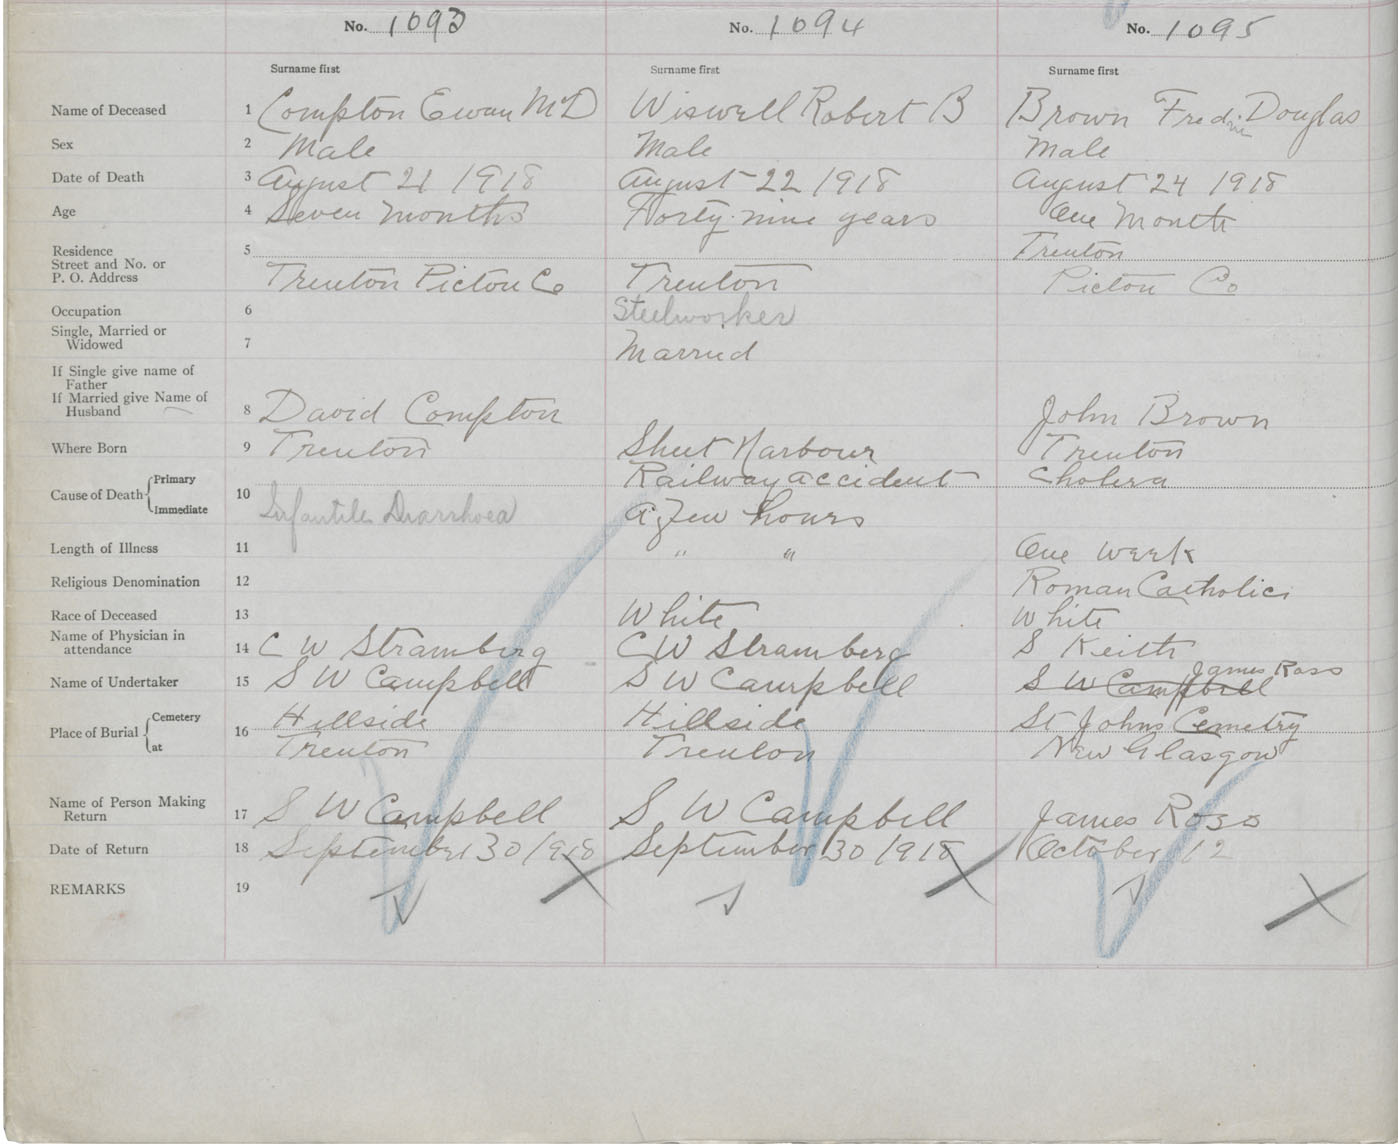 No. 1093 No. 1094 No. 1095
Surname first Surname first Surname first
Name of Deceased 1 Compton Ewan McD Wiswell Robert B Brown Fredric Douglas
Sex 2 Male Male Male
Date of Death 3 August 21 1918 August 22 1918 August 24 1918
Age 4 Seven months Forty-nine years One Month
Residence 5 Trenton
Street and No. or
P. O. Address Trenton Pictou Co Trenton Pictou Co
Occupation 6 Steelworker
Single, Married or
Widowed 7 Married
If Single give name of
Father
If Married give Name of
Husband 8 David Compton John Brown
Where Born 9 Trenton Sheet Harbour Trenton
Cause of Death Primary 10 Railway accident Cholera
Immediate Infantile Diarrhoea A few hours
Length of Illness 11 " " One week
Religious Denomination 12 Roman Catholic
Race of Deceased 13 White White
Name of Physician in
attendance 14 C W Stramberg C W Stramberg S Keith
Name of Undertaker 15 S W Campbell S W Campbell S W Campbell James Ross
Place of Burial Cemetery 16 Hillside Hillside St Johns Cemetry
at Trenton Trenton New Glasgow
Name of Person Making
Return 17 S W Campbell S W Campbell James Ross
Date of Return 18 September 30 1918 September 30 1918 October 12
REMARKS 19